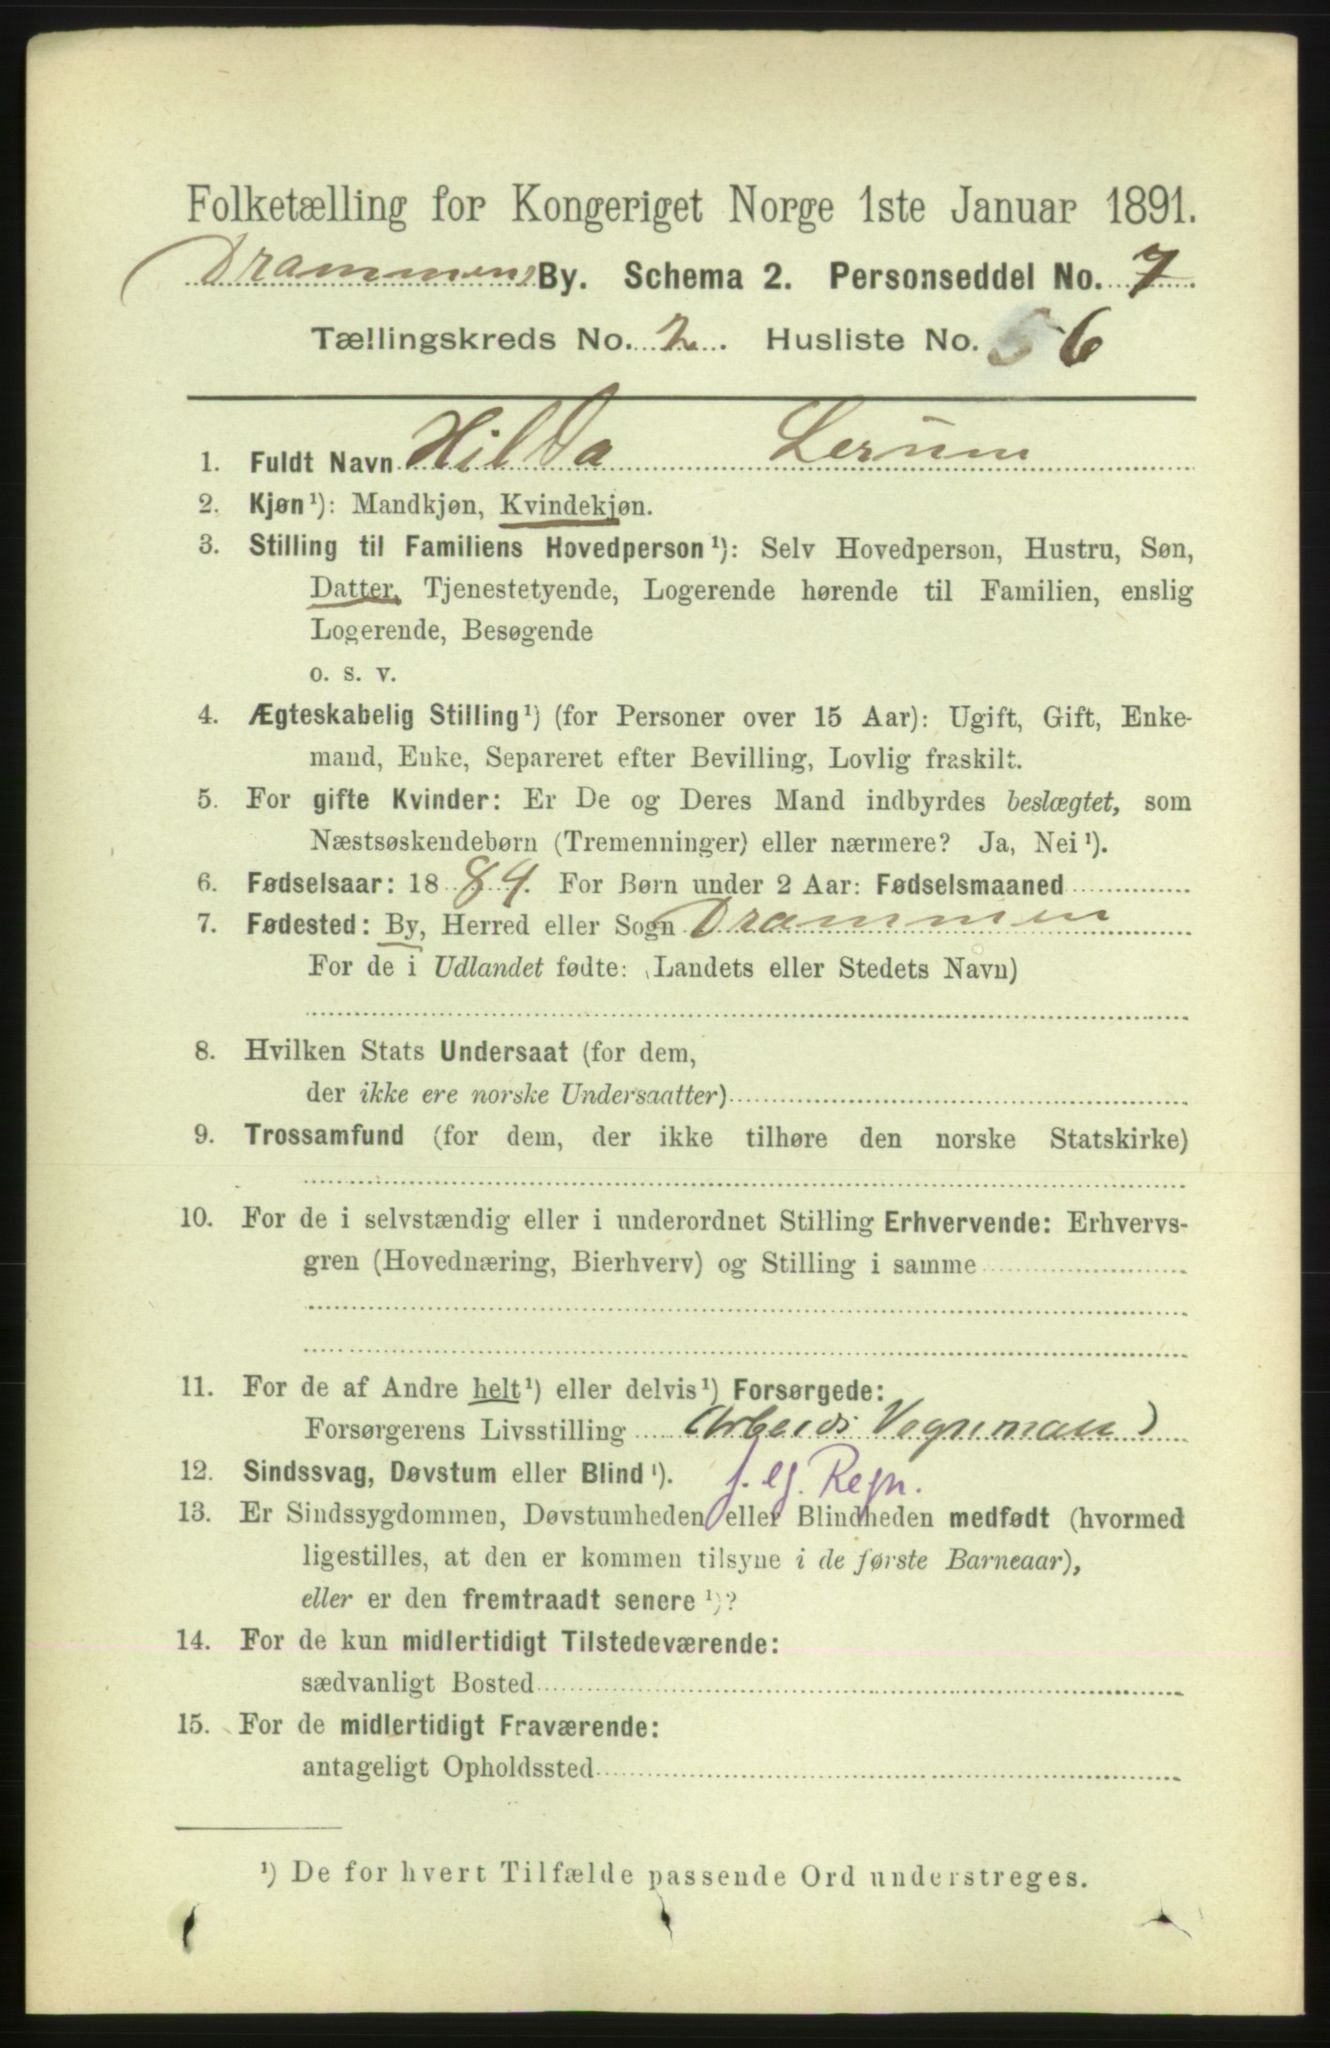 Folketælling for Kongeriget Norge 1ste Januar 1891.
Drammens By. Schema 2. Personseddel No. 7
Tællingskreds No. 2. Husliste No. 56
1. Fuldt Navn Hilda Lerum
2. Kjøn¹): Mandkjøn, Kvindekjøn.
3. Stilling til Familiens Hovedperson¹): Selv Hovedperson, Hustru, Søn,
Datter, Tjenestetyende, Logerende hørende til Familien, enslig
Logerende, Besøgende
o. s. v.
4. Ægteskabelig Stilling¹) (for Personer over 15 Aar): Ugift, Gift, Enke-
mand, Enke, Separeret efter Bevilling, Lovlig fraskilt.
5. For gifte Kvinder: Er De og Deres Mand indbyrdes beslægtet, som
Næstsøskendebørn (Tremenninger) eller nærmere? Ja, Nei¹).
6. Fødselsaar: 1884. For Børn under 2 Aar: Fødselsmaaned
7. Fødested: By, Herred eller Sogn Drammen
For de i Udlandet fødte: (Landets eller Stedets Navn)
8. Hvilken Stats Undersaat (for dem,
der ikke ere norske Undersaatter)
9. Trossamfund (for dem, der ikke tilhøre den norske Statskirke)
10. For de i selvstændig eller i underordnet Stilling Erhvervende: Erhvervs-
gren (Hovednæring, Bierhverv) og Stilling i samme
11. For de af Andre helt¹) eller delvis¹) Forsørgede:
Forsørgerens Livsstilling Vognman)
12. Sindssvag, Døvstum eller Blind¹). f. eg. Regn.
13. Er Sindssygdommen, Døvstumheden eller Blindheden medfødt (hvormed
ligestilles, at den er kommen tilsyne i de første Barneaar),
eller er den fremtraadt senere¹)?
14. For de kun midlertidigt Tilstedeværende:
sædvanligt Bosted
15. For de midlertidigt Fraværende:
antageligt Opholdssted
¹) De for hvert Tilfælde passende Ord understreges.